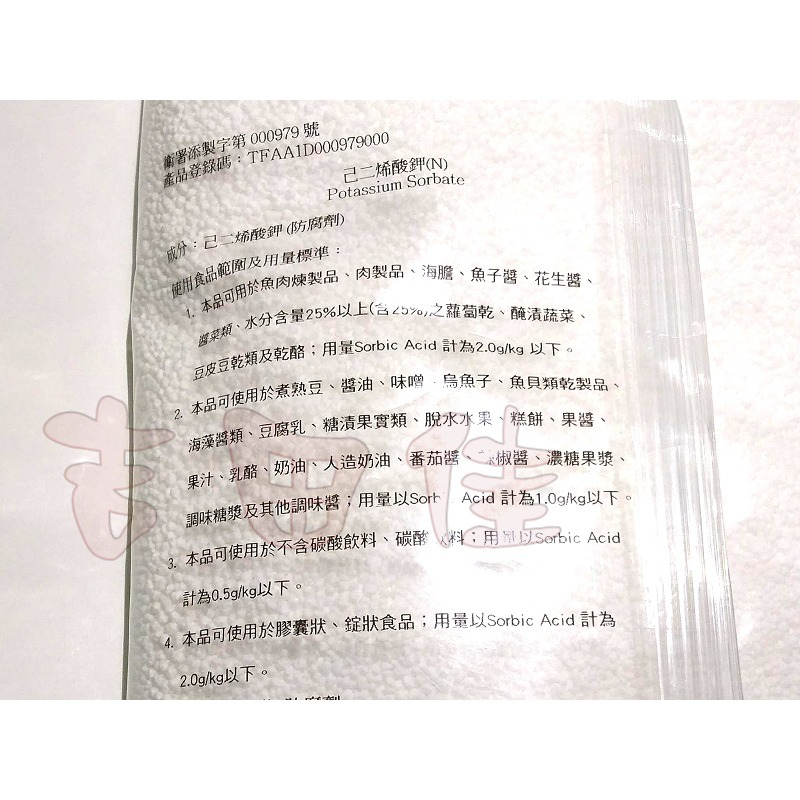 衛署添製字第 000979 號
產品登錄碼：TFAA1D000979000
己二烯酸鉀(N)
Potassium Sorbate
成分：己二烯酸鉀 (防腐劑)
使用食品範圍及用量標準：
1. 本品可用於魚肉煉製品、肉製品、海膽、魚子醬、花生醬、
醬菜類、水分含量25%以上(含25%)之蘿蔔乾、醃漬蔬菜、
豆皮豆乾類及乾酪；用量Sorbic Acid 計為2.0g/kg 以下。
2. 本品可使用於煮熟豆、醬油、味噌、烏魚子、魚貝類乾製品、
海藻醬類、豆腐乳、糖漬果實類、脫水水果、糕餅、果醬、
果汁、乳酪、奶油、人造奶油、番茄醬、辣椒醬、濃糖果漿、
調味糖漿及其他調味醬；用量以Sorbic Acid 計為1.0g/kg以下。
3. 本品可使用於不含碳酸飲料、碳酸飲料；用量以Sorbic Acid
計為0.5g/kg以下。
4. 本品可使用於膠囊狀、錠狀食品；用量以Sorbic Acid 計為
2.0g/kg以下。
吉田佳